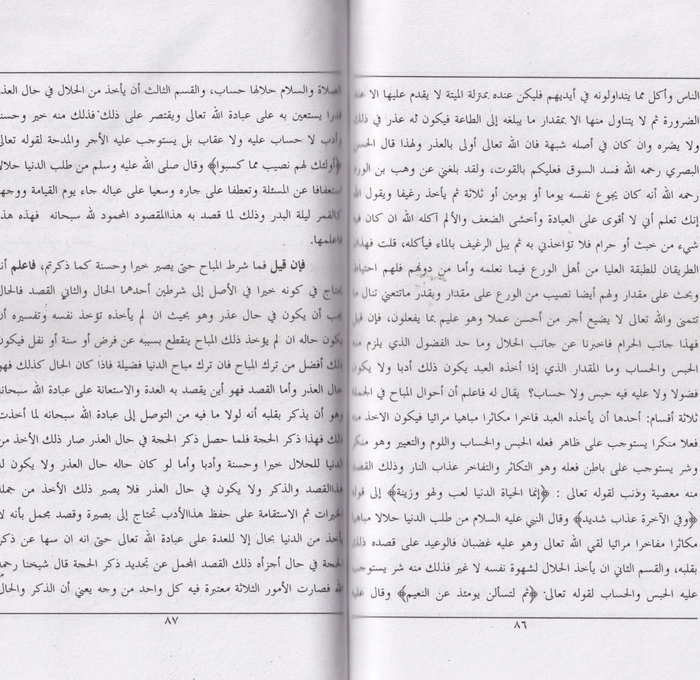 الناس وأكل مما يتداولونه في أيديهم فليكن عنده بمنزلة الميتة لا يقدم عليها الا عند
الضرورة ثم لا يتناول منها الا بمقدار ما يبلغه إلى الطاعة فيكون له عذر في ذلك
ولا يضره وان كان في أصله شبهة فان الله تعالى أولى بالعذر ولهذا قال الحسن
البصري رحمه الله فسد السوق فعليكم بالقوت، ولقد بلغني عن وهب بن الورد
رحمه الله أنه كان يجوع نفسه يوما أو يومين أو ثلاثة ثم يأخذ رغيفا ويقول اللهم
إنك تعلم أني لا أقوى على العبادة وأخشى الضعف والألم آكله الله ان كان فيه
شيء من خبث أو حرام فلا تؤاخذني به ثم يبل الرغيف بالماء فيأكله، قلت فهذان
الطريقان للطبقة العليا من أهل الورع فيما نعلمه وأما من دونهم فلهم احتياط
وبحث على مقدار ولهم أيضا نصيب من الورع على مقدار وبقدر ماتتعنى تنال ما
تتمنى والله تعالى لا يضيع أجر من أحسن عملا وهو عليم بما يفعلون، فإن قيل
فهذا جانب الحرام فاخبرنا عن جانب الحلال وما حد الفضول الذي يلزم منه
الحبس والحساب وما المقدار الذي إذا أخذه العبد يكون ذلك أدبا ولا يكون
فضولا ولا عليه فيه حبس ولا حساب؟ يقال له فاعلم أن أحوال المباح في الجملة
ثلاثة أقسام: أحدها أن يأخذه العبد فاخرا مكاثرا مباهيا مرائيا فيكون الاخذ منه
فعلا منكرا يستوجب على ظاهر فعله الحبس والحساب واللوم والتعيير وهو منكر
وشر يستوجب على باطن فعله وهو التكاثر والتفاخر عذاب النار وذلك القصد
منه معصية وذنب لقوله تعالى : ﴿إنما الحياة الدنيا لعب ولهو وزينة﴾ إلى قوله
﴿وفي الآخرة عذاب شديد﴾ وقال النبي عليه السلام من طلب الدنيا حلالا مباهيا
مكاثرا مفاخرا مرائيا لقي الله تعالى وهو عليه غضبان فالوعيد على قصده ذلك
بقلبه، والقسم الثاني ان يأخذ الحلال لشهوة نفسه لا غير فذلك منه شر يستوجب
عليه الحبس والحساب لقوله تعالى. ﴿ثم لتسألن يومئذ عن النعيم﴾ وقال عليه
٨٦
الصلاة والسلام حلالها حساب، والقسم الثالث أن يأخذ من الحلال في حال العذر
قدرا يستعين به على عبادة الله تعالى ويقتصر على ذلك فذلك منه خير وحسنة
وأدب لا حساب عليه ولا عقاب بل يستوجب عليه الأجر والمدحة لقوله تعالى
﴿أولئك لهم نصيب مما كسبوا﴾ وقال صلى الله عليه وسلم من طلب الدنيا حلالا
استعفافا عن المسئلة وتعطفا على جاره وسعيا على عياله جاء يوم القيامة ووجهه
كالقمر ليلة البدر وذلك لما قصد به هذاالمقصود المحمود لله سبحانه فهذه هذه
فاعلمها.
فإن قيل فما شرط المباح حتى يصير خيرا وحسنة كما ذكرتم، فاعلم أنه
يحتاج في كونه خيرا في الأصل إلى شرطين أحدهما الحال والثاني القصد فالحال
يجب أن يكون في حال عذر وهو بحيث ان لم يأخذه تؤخذ نفسه وتفسيره أن
يكون حاله ان لم يؤخذ ذلك المباح ينقطع بسببه عن فرض أو سنة أو نفل فيكون
ذلك أفضل من ترك المباح فان ترك مباح الدنيا فضيلة فاذا كان الحال كذلك فهو
حال العذر وأما القصد فهو أين يقصد به العدة والاستعانة على عبادة الله سبحانه
وهو أن يذكر بقلبه أنه لولا ما فيه من التوصل إلى عبادة الله سبحانه لما أخذت
ذلك فهذا ذكر الحجة فلما حصل ذكر الحجة في حال العذر صار ذلك الأخذ من
الدنيا للحلال خيرا وحسنة وأدبا وأما لو كان حاله حال العذر ولا يكون له
هذاالقصد والذكر ولا يكون في حال العذر فلا يصير ذلك الأخذ من جملة
الخيرات ثم الاستقامة على حفظ هذاالأدب تحتاج إلى بصيرة وقصد محمل بأنه لا
يأخذ من الدنيا بحال إلا للعدة على عبادة الله تعالى حتى انه ان سها عن ذكر
الحجة في حال أجزأه ذلك القصد المجمل عن تجديد ذكر الحجة قال شيخنا رحمه
الله فصارت الأمور الثلاثة معتبرة فيه كل واحد من وجه يعني أن الذكر والحال
٨٧